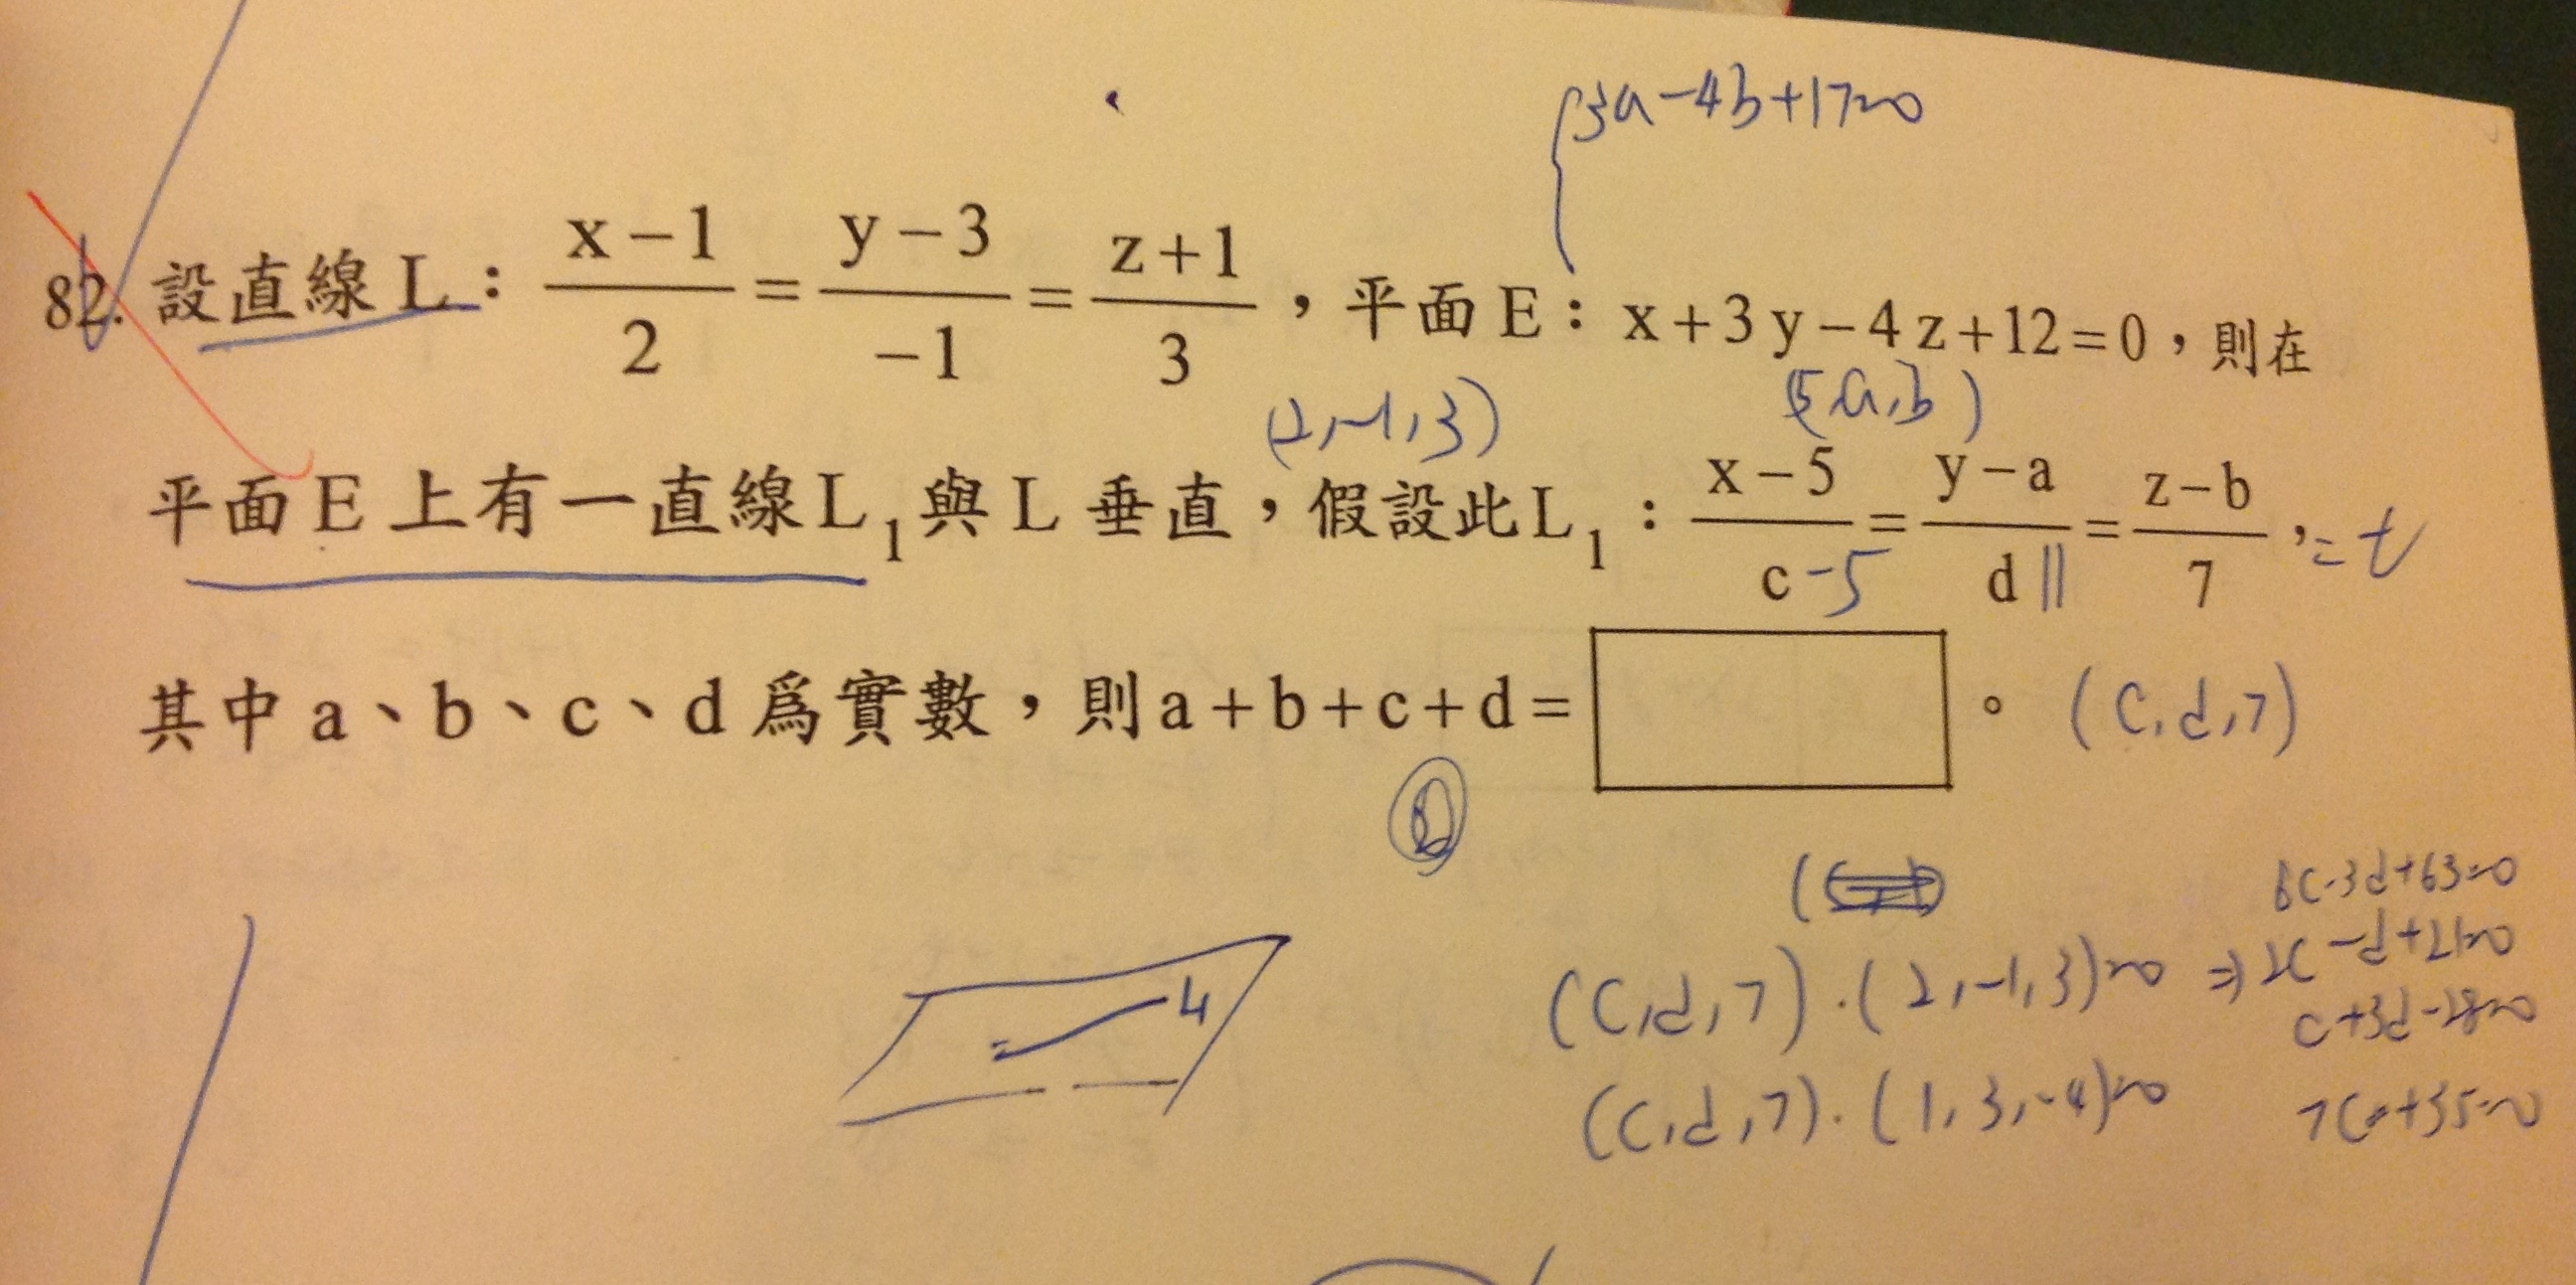 3a-4b+17=0
82. 設直線L：x-1/2 = y-3/-1 = z+1/3，平面E：x+3y-4z+12=0，則在
(2,-1,3) (5,a,b)
平面E上有一直線L₁與L垂直，假設此L₁：x-5/c = y-a/d = z-b/7，=t
-5 11
其中a、b、c、d爲實數，則a+b+c+d= 。 (c,d,7)
6c-3d+63=0
(c,d,7)·(2,-1,3)=0 ⇒ 2c-d+21=0
c+3d-28=0
(c,d,7)·(1,3,-4)=0 7c+35=0